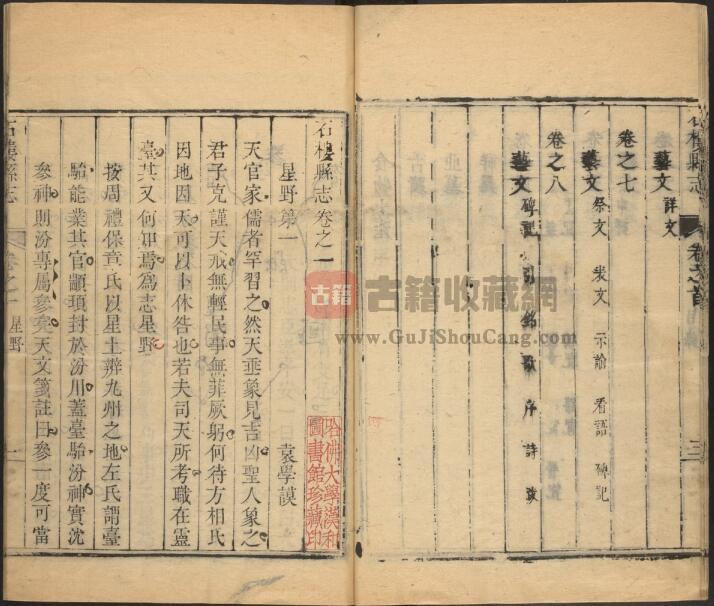 藝文 詳文
卷之七
藝文 祭文 表文 示諭 看語 碑記
卷之八
藝文 碑記 引 銘 歌 序 詩 跋
石樓縣志
卷之首
三
石樓縣志卷之一
星野第一
袁學謨
天官家儒者罕習之然天垂象見吉凶聖人象之
君子克謹天戒無輕民事無菲厥躬何待方相氏
因地因天可以卜休咎也若夫司天所考職在靈
臺其又何知焉爲志星野
按周禮保章氏以星土辨九州之地左氏謂臺
駘能業其官顓頊封於汾川蓋臺駘汾神實沈
參神則汾專屬參矣天文箋註曰參一度可當
石樓縣志
卷之一
星野
一
哈佛大學漢和
圖書館珍藏印
古籍
古籍收藏網
www.GuJiShouCang.com